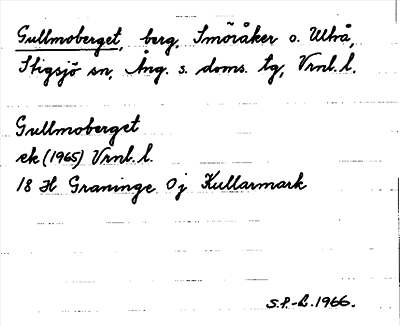 Gullmoberget, berg, Smöråker o. Ultrå,
Stigsjö sn, Ång. s. doms. tg, Vrnl. l.
Gullmoberget
ek (1965) Vrnl. l.
18 H Graninge 0j Kullarmark
S.P.-B. 1966.